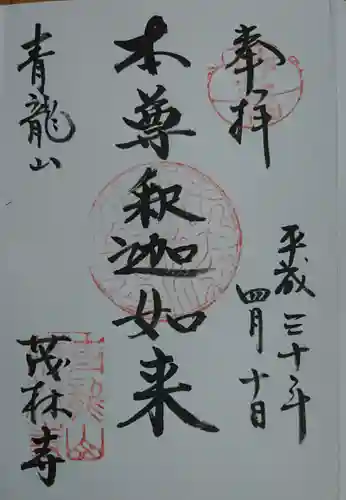 奉拝
平成三十年
四月十日
本尊釈迦如来
青龍山
茂林寺